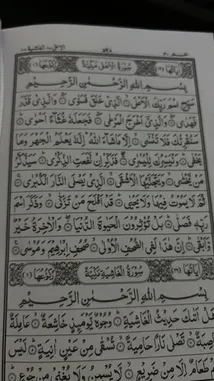 سُورَةُ الْأَعْلَى مَكِّيَّةٌ
بِسْمِ اللهِ الرَّحْمٰنِ الرَّحِيْمِ
سَبِّحِ اسْمَ رَبِّكَ الْأَعْلَى ۞ الَّذِيْ خَلَقَ فَسَوّٰى ۞ وَالَّذِيْ قَدَّرَ
فَهَدٰى ۞ وَالَّذِيْ أَخْرَجَ الْمَرْعٰى ۞ فَجَعَلَهٗ غُثَاءً أَحْوٰى ۞
سَنُقْرِئُكَ فَلَا تَنْسٰى ۞ إِلَّا مَا شَاءَ اللهُ إِنَّهٗ يَعْلَمُ الْجَهْرَ وَمَا
يَخْفٰى ۞ وَنُيَسِّرُكَ لِلْيُسْرٰى ۞ فَذَكِّرْ إِنْ نَّفَعَتِ الذِّكْرٰى ۞ سَيَذَّكَّرُ
مَنْ يَّخْشٰى ۞ وَيَتَجَنَّبُهَا الْأَشْقَى ۞ الَّذِيْ يَصْلَى النَّارَ الْكُبْرٰى ۞
ثُمَّ لَا يَمُوْتُ فِيْهَا وَلَا يَحْيٰى ۞ قَدْ أَفْلَحَ مَنْ تَزَكّٰى ۞ وَذَكَرَ اسْمَ
رَبِّهٖ فَصَلّٰى ۞ بَلْ تُؤْثِرُوْنَ الْحَيٰوةَ الدُّنْيَا ۞ وَالْاٰخِرَةُ خَيْرٌ
وَّأَبْقٰى ۞ إِنَّ هٰذَا لَفِي الصُّحُفِ الْأُوْلٰى ۞ صُحُفِ إِبْرٰهِيْمَ وَمُوْسٰى ۞
سُورَةُ الْغَاشِيَةِ مَكِّيَّةٌ
بِسْمِ اللهِ الرَّحْمٰنِ الرَّحِيْمِ
هَلْ أَتٰكَ حَدِيْثُ الْغَاشِيَةِ ۞ وُجُوْهٌ يَّوْمَئِذٍ خَاشِعَةٌ ۞ عَامِلَةٌ
صِبَةٌ ۞ تَصْلٰى نَارًا حَامِيَةً ۞ تُسْقٰى مِنْ عَيْنٍ اٰنِيَةٍ ۞ لَيْسَ
طَعَامٌ إِلَّا مِنْ ضَرِيْعٍ ۞ لَا يُسْمِنُ وَلَا يُغْنِيْ مِنْ جُوْعٍ